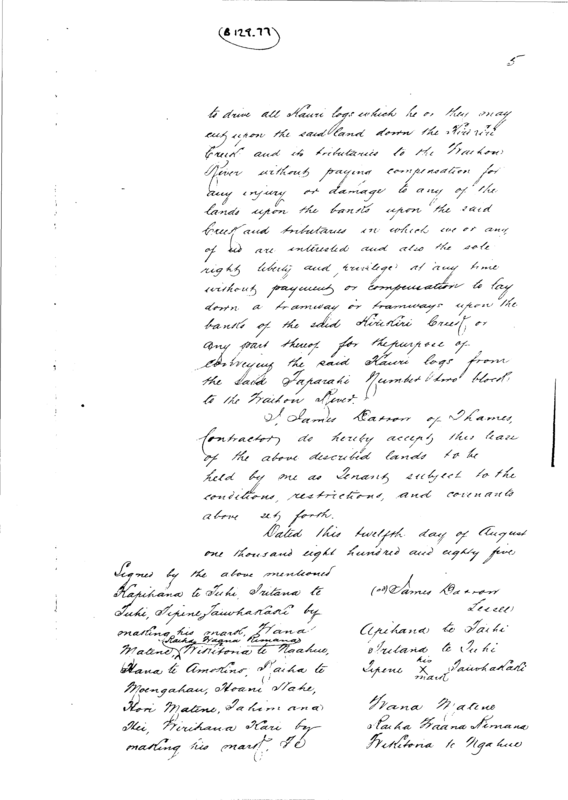 (B 129.77)
5
to drive all Kauri logs which he or they may
cut upon the said land down the Kirikiri
Creek and its tributaries to the Waihou
River without paying compensation for
any injury or damage to any of the
lands upon the banks upon the said
Creek and tributaries in which we or any
of us are interested and also the sole
right liberty and privilege at any time
without payment or compensation to lay
down a tramway or tramways upon the
banks of the said Kirikiri Creek or
any part thereof for the purpose of
conveying the said Kauri logs from
the said Taparahi Number two block
to the Waihou River.
I, James Darrow of Thames,
Contractor, do hereby accept this lease
of the above described lands to be
held by me as Tenant, subject to the
conditions, restrictions, and covenants
above set forth.
Dated this twelfth day of August
one thousand eight hundred and eighty five
Signed by the above mentioned
Kapihana te Tuhi, Iritana te
Tuhi, Tipene Tauwhakaki by
making his mark, Wana
Raiha Waana Rimana
Matene, Wikitoria te Ngahue,
Hana te Amohino, Raiha te
Moengahau, Hoani Nahe,
Hori Matene, Tahimana
Hei, Wirihana Kari by
making his mark, Te
James Darrow
Lessee
Apihana te Tuhi
Iritana te Tuhi
Tipene his X mark Tauwhakaki
Wana Matene
Raiha Waana Rimana
Wikitoria te Ngahue